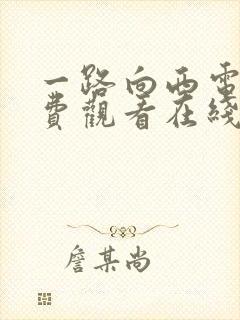 一路向西電
費觀看在綫
詹某尚